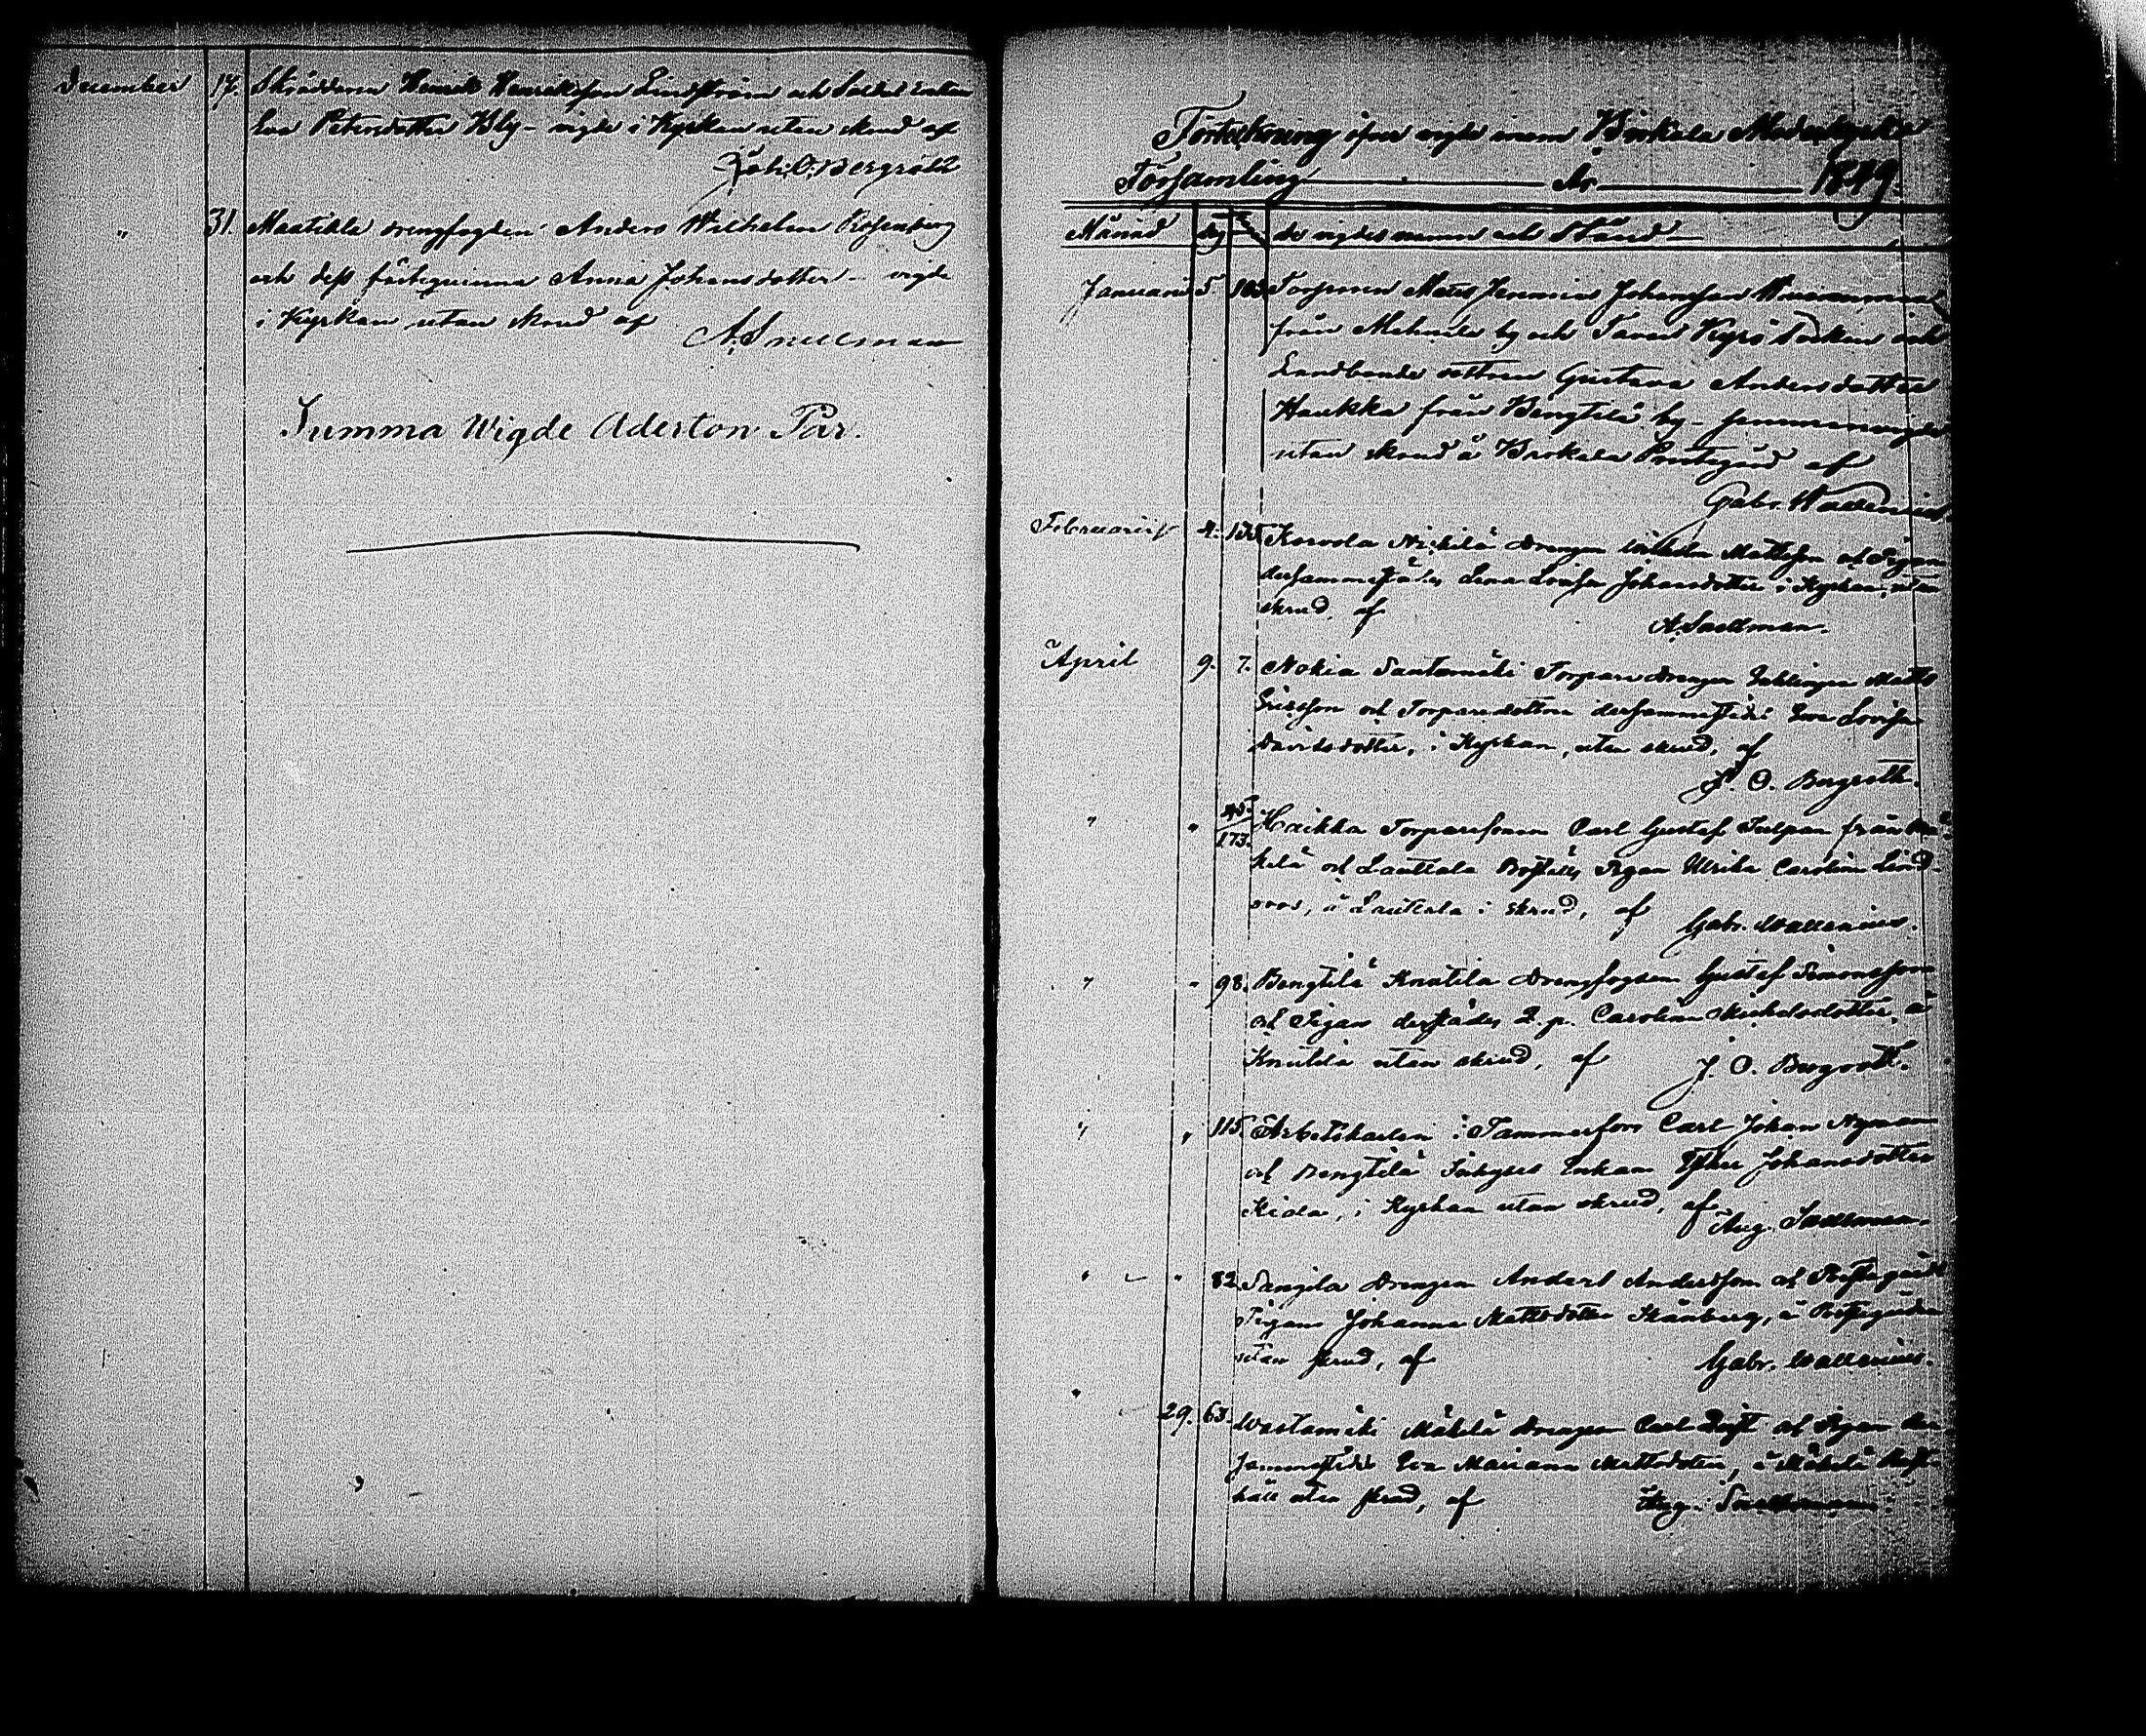 December 17. Skräddaren Henrik Henriksson Lindström och Soldat Enkan
Eva Petersdotter Kly - vigde i Kyrkan utan skrud af
Joh: O: Bergroth
" 31. Maatiala drengfogden Anders Wilhelm Rosenberg
och dess fästeqvinna Anna Johansdotter - vigde
i Kyrkan utan skrud af A. Snellman
Summa Wigde Aderton Par.
Förteckning öfver vigde inom Birkala Moderkyrko
Församling År 1849.
Månad dag de vigdes namn och Stånd
Januari 5 Torparen Mats Jeremias Johansson
från by och Tavast Kyrö Socken och
Landbonde dottren Gustava Andersdotter
Haukka från Bengtilä by - sammanvigde
utan skrud å Birkala Prestgård af
Gabr. Wallenius
Februarii 4. 135 Korvola Mickilä Drengen Wilhelm Mattsson och Pigan
dersammastädes Lena Lovisa Johansdotter i Kyrkan, utan
skrud, af A. Snellman.
April 9. 7. Nokia Santamäki Torpare Drengen Matts
Ericsson och Torparedottren dersammastädes Eva Lovisa
Davidsdotter, i Kyrkan, utan skrud, af
J. O. Bergroth.
" " 45/173. Haikka Torparesonen Carl Gustaf Tulpan från
kelä och Lauttala Boställs Pigan Ulrika Carolina Lind-
roos, å Lauttala i skrud, af Gabr. Wallenius.
" " 98. Bengtilä Knutila Drengfogden Gustaf Simonsson
och Pigan derstädes Carolina Michelsdotter, å
Knutila utan skrud, af J. O. Bergroth.
" " 115 Arbetskarlen i Tammerfors Carl Johan Nyman
och Bengtilä Enkan Johansdotter
Kida, i Kyrkan utan skrud, af Aug. Snellman.
" " 82. Sangila Drengen Anders Andersson och Prestgårds
Pigan Johanna Mattsdotter Stånberg, å Prestgården
utan skrud, af Gabr. Wallenius.
" 29. 63. Wastamäki Mäkelä Drengen Carl och Pigan der-
sammastädes Eva Mariana Mattsdotter, å Mäkelä Rust-
håll utan skrud, af Aug. Snellman